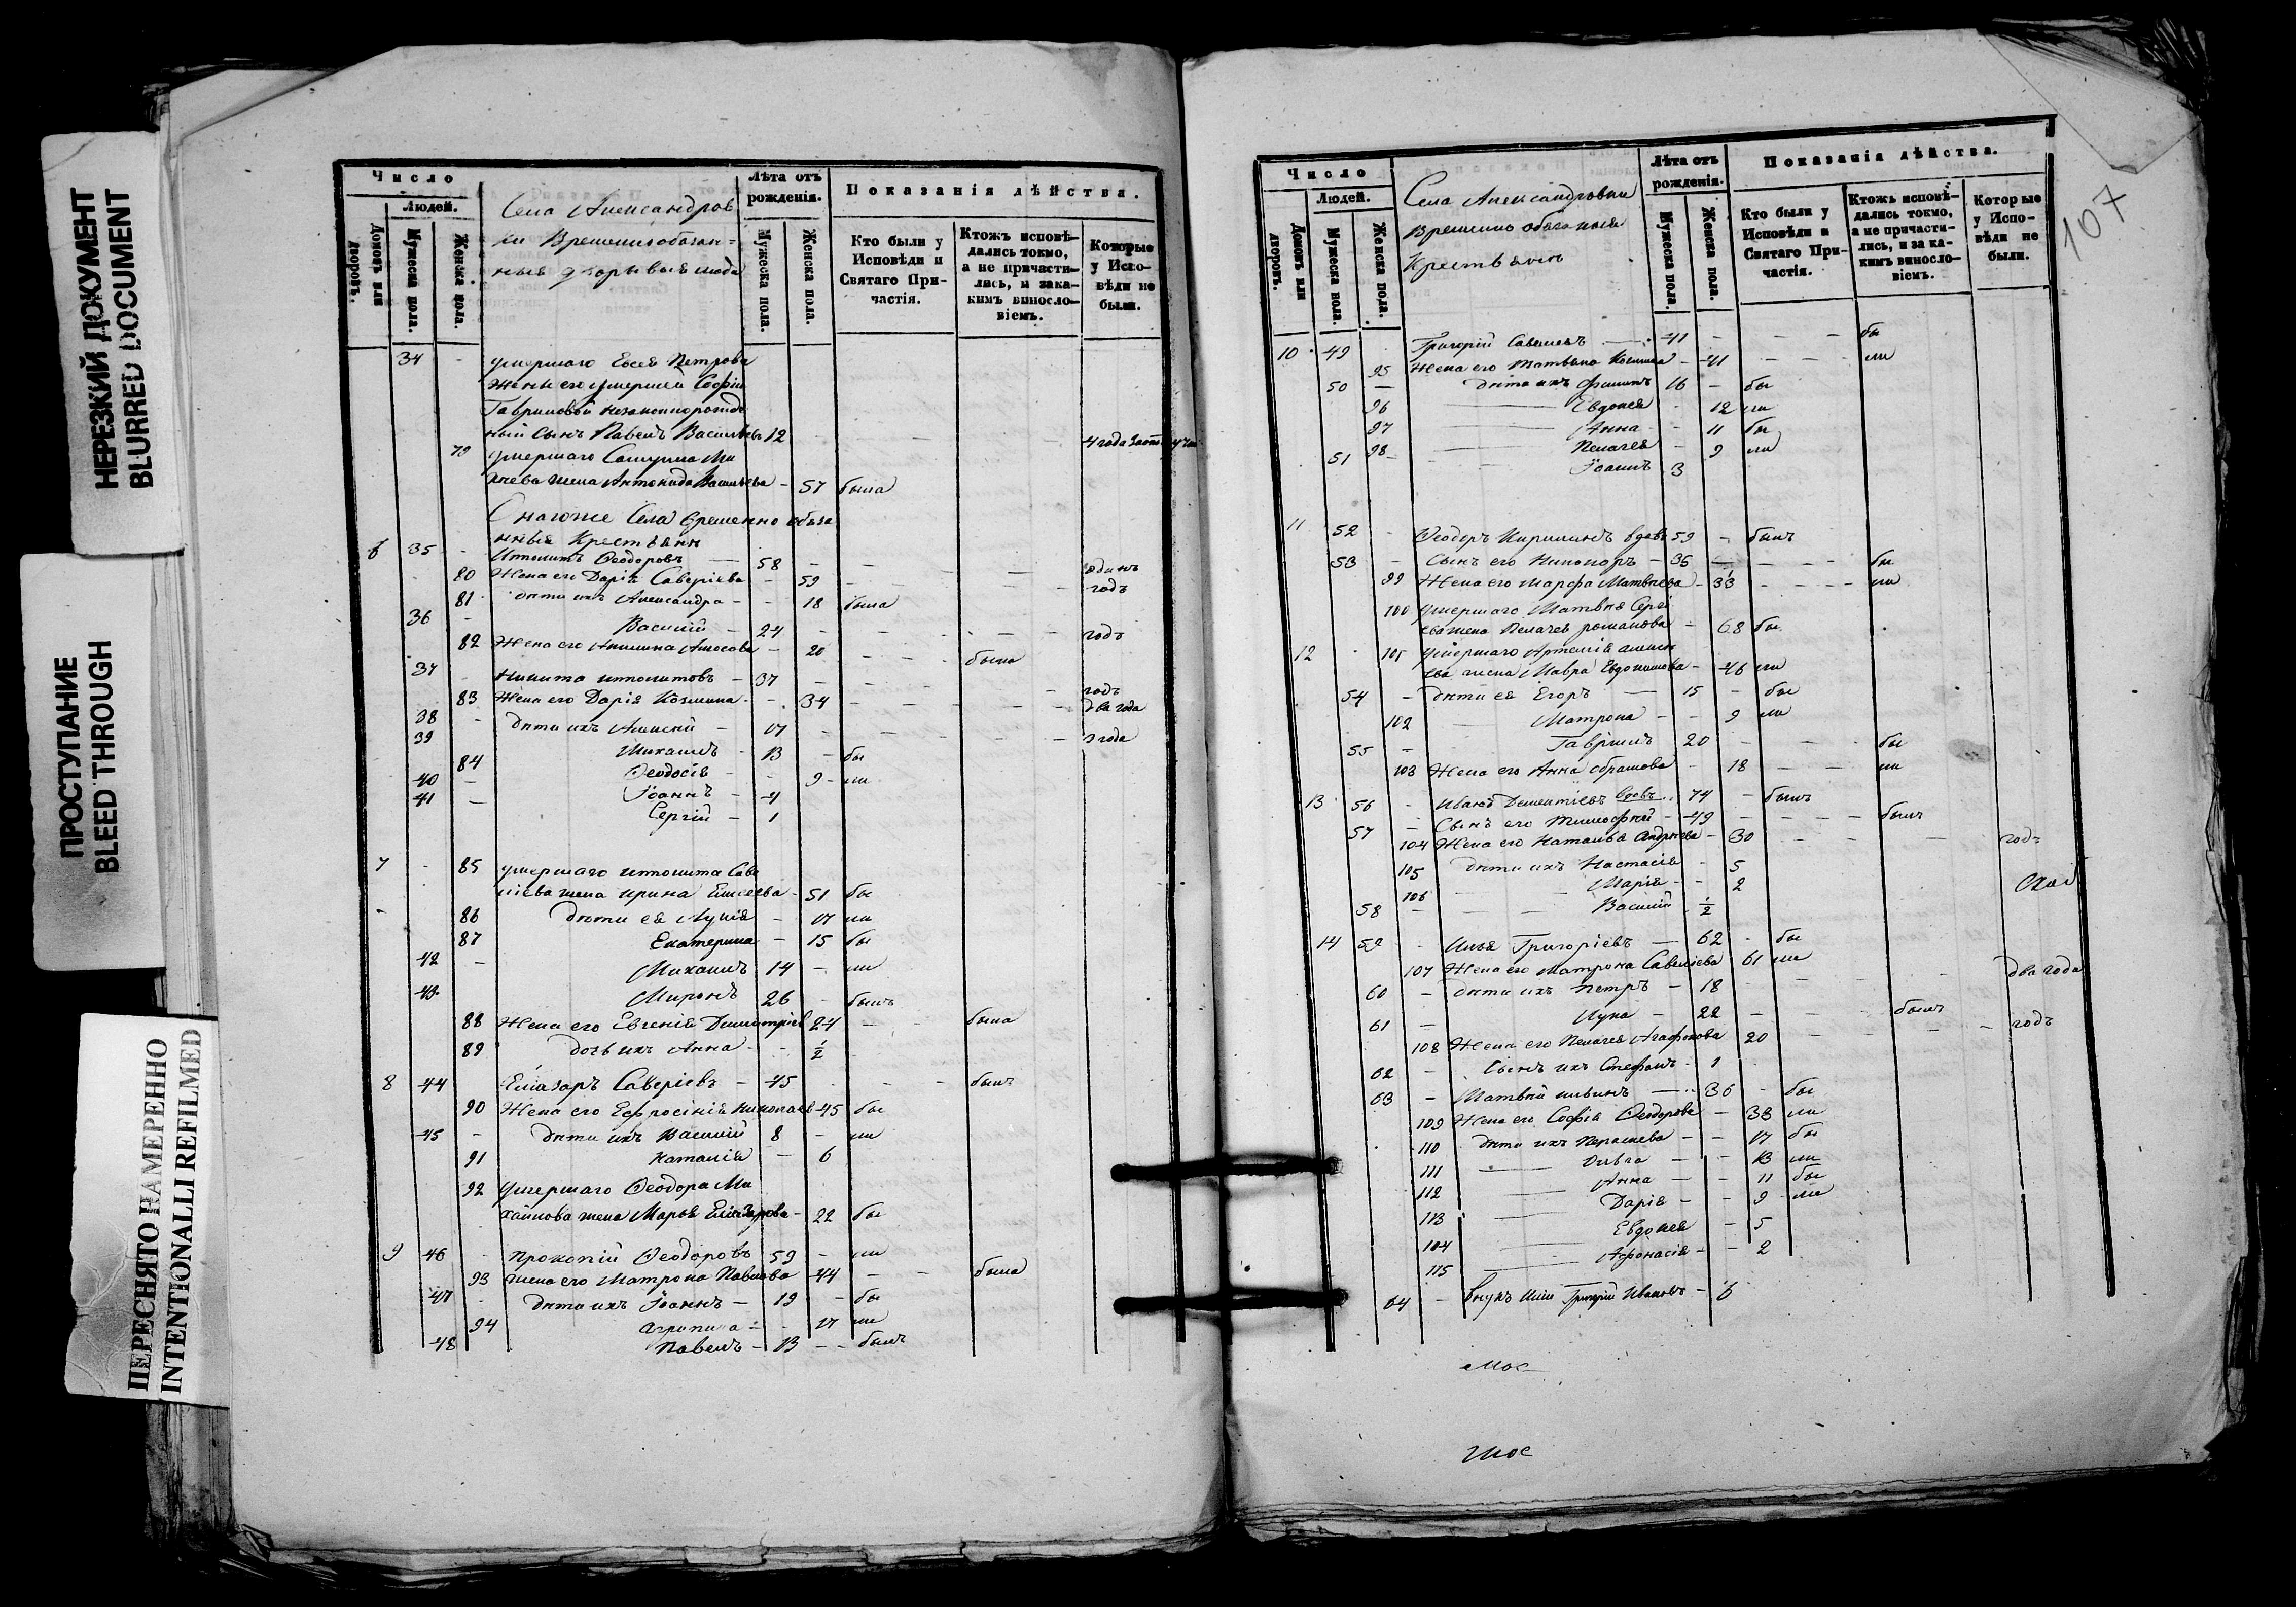 НЕРЕЗКИЙ ДОКУМЕНТ
BLURRED DOCUMENT
ПРОСТУПАНИЕ
BLEED THROUGH
ПЕРЕСНЯТО НАМЕРЕННО
INTENTIONALLI REFILMED
Число
Людей.
Домовъ или дворовъ.
Мужеска пола.
Женска пола.
Села Александров
ки Временнообязан=
ныя дворывыя люди
Лѣта отъ рожденія.
Мужеска пола.
Женска пола.
Показанія дѣйства.
Кто были у Исповѣди и Святаго Причастія.
Ктожъ исповѣдались токмо, а не причастились, и закакимъ винословіемъ.
Которые у Исповѣди не были.
34 - умершаго Евсея Петрова
жены его умершей Софіи
Гавриловой незаконнорожде
ный сынъ Павелъ Васильевъ 12 - - - 4 года
79 умершаго
жена Антонида Васильева - 57 была
Онагоже Села временно обяза
нныя Крестьяни
6 35 - Ипполитъ Ѳеодоровъ — 58 - - - одинъ
80 Жена его Дарія Савѣріева - 59 - - - годъ
81 дѣти ихъ Александра - - 18 была
36 - Василій - 24 - - - годъ
82 Жена его Акилина Амосова - 20 - - была
37 - Никита Ипполитовъ - 37 - - - годъ
83 Жена его Дарія Козмина - - 34 - - - два года
38 - дѣти ихъ Алексѣй - 17 - - - 3 года
39 Михаилъ - 13 - бы
84 Ѳеодосія - - 9 - ли
40 - Іоаннъ - 4
41 - Сергій - 1
7 - 85 умершаго Ипполита Саве
ліева жена Ирина Елисеева - 51 бы
86 дѣти ея Лукія - 17 ли
87 Екатерина - 15 бы
42 - Михаилъ 14 - ли
43 Миронъ 26 - былъ
88 Жена его Евгенія Димитріев 24 - - была
89 дочь ихъ Анна - - ½
8 44 Елеазаръ Савѣріевъ - 45 - - былъ
90 Жена его Ефросинія Николаев 45 бы
45 - дѣти ихъ Василій 8 - ли
91 Наталія - 6
92 Умершаго Ѳеодора Ми
хайлова жена Марья Елиазарова - 22 бы
9 46 - Прокопій Ѳеодоровъ 59 - ли
93 жена его Матрона Павлова 44 - - была
47 - дѣти ихъ Іоаннъ - 19 - бы
94 Агрипина - - 17 ли
48 Павелъ - 13 - - былъ
107
Число
Людей.
Домовъ или дворовъ.
Мужеска пола.
Женска пола.
Села Александровки
временно обязаныя
Крестьяни
Лѣта отъ рожденія.
Мужеска пола.
Женска пола.
Показанія дѣйства.
Кто были у Исповѣди и Святаго Причастія.
Ктожъ исповѣдались токмо, а не причастились, и за какимъ винословіемъ.
Которые у Исповѣди не были.
10 49 Григорій Савельевъ - 41 - - - бы
95 Жена его Матвѣна Козмина - 41 - - ли
50 — дѣти ихъ Филипъ 16 - бы
96 Евдокея - 12 ли
97 Анна - 11 бы
98 - Пелагея - 9 ли
51 Іоаннъ 3
11 52 - Ѳеодоръ Кириллинъ вдовъ 59 - былъ
53 - Сынъ его Никоноръ - 35 - - - бы
99 Жена его Марфа Матвѣева - 33 - - - ли
100 умершаго Матвѣя Серге
ева жена Пелагея романова - 68 бы
12 - 101 умершаго Артемія алексе
ева жена Мавра Евдокимова - 46 ли
54 - дѣти ея Егоръ — 15 - бы
102 Матрона - - 9 ли
55 - Гаврилъ 20 - - - бы
103 Жена его Анна Абрамова - 18 - - ли
13 56 - Иванъ Дементіевъ вдовъ 74 - былъ
57 - Сынъ его Тимофѣй - 49 - - - былъ
104 Жена его Наталья Андреева - 30 - - - годъ
105 дѣти ихъ Настасія - 5
106 Марія - - 2
58 - Василій ½
14 59 - Илья Григоріевъ — 62 - бы
107 Жена его Матрона Савеліева 61 ли
60 - дѣти ихъ Петръ - 18 - - два года
61 - Лука - 22 - - - былъ
108 Жена его Пелагея Агафонова 20 - - - годъ
62 - Сынъ ихъ Стефанъ - 1
63 - Матвѣй Ильинъ — 36 - бы
109 Жена его Софія Ѳеодорова - 33 ли
110 дѣти ихъ Параскева - - 17 бы
111 Ольга - - 13 ли
112 Анна - - 11 бы
113 Дарія - - 9 ли
104 Евдокея - 5
115 Афонасія - - 2
64 - Внукъ Ильи Григорій Ивановъ - 6